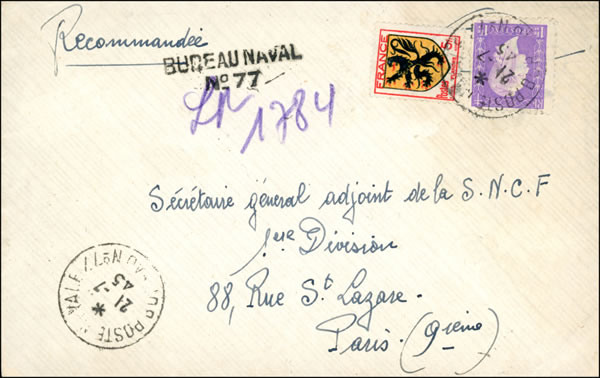 Recommandée
BUREAU NAVAL
N° 77
1784
FRANCE
5F
Secrétaire général adjoint de la S.N.C.F
1ère Division
88, Rue St Lazare.
Paris (9ième)
POSTE
21
45
POSTE NAVALE
N° 77
21
45